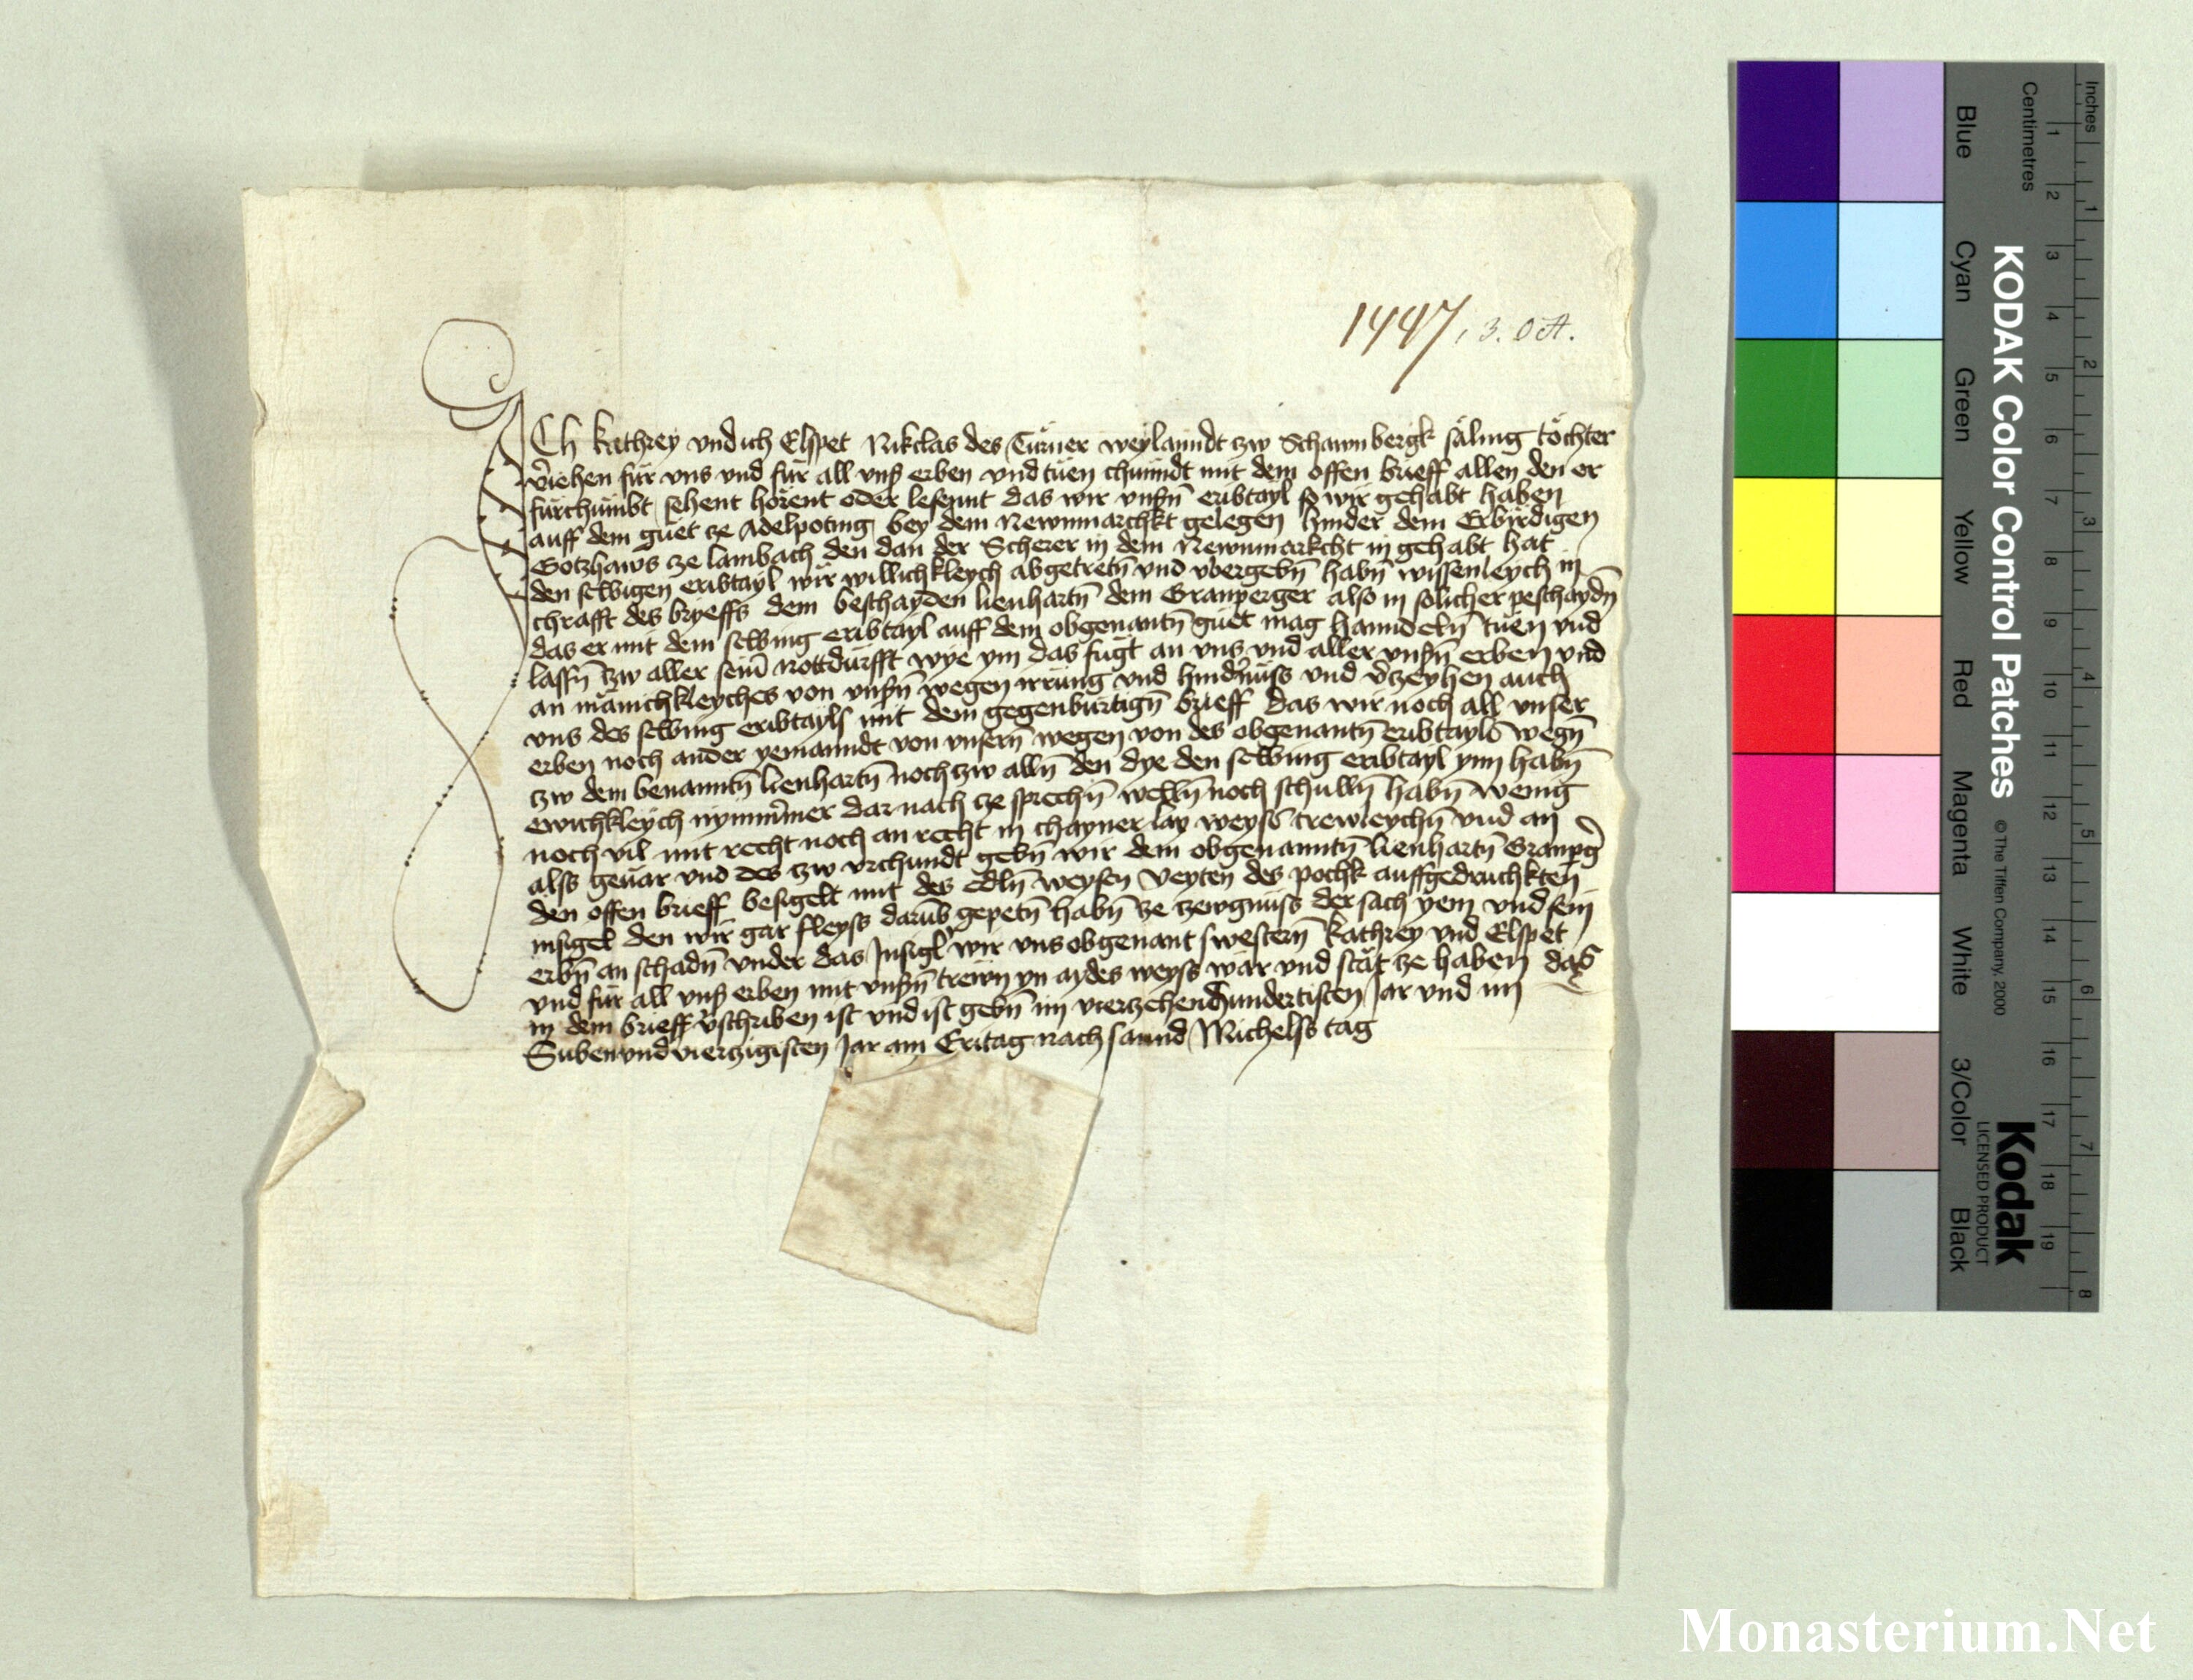 1447, 3. Oct.
ICh kathrey vnd ich Elspet Nikclas des Türner weylanndt zw Schawnbergk säling töchter
v̉iehen für vns vnd für all vnß erben vnd tüen chunndt mit dem offen brieff allen den er
fürchümbt sehent hörent oder lesennt das wir vnßn̄ eribtayl so wir gehabt haben
auff dem güet ze Adelpoting bey dem Newnmarchkt gelegen hinder dem Erbirdigen
Gotzhaws ze lambach den dan der Scherer in dem Newnmarkcht in gehabt hat
den selbigen eribtayl wir willichkleych abgetretn̄ vnd vbergebn̄ habn̄ wissenleych in
chrafft des bryeffs dem beschayden lienhartn̄ dem Granperger also in solicher peschaydn̄
das er mit dem selbing eribtayl auff dem obgenantn̄ güet mag hanndeln̄ tüen vnd
lassn̄ zw aller sein̄ nottdürfft wye ym das fügt an vns vnd aller vnßn̄ erben vnd
an mänichkleyches von vnßn̄ wegen irrüng vnd hindn̉üss vnd v̉zeyhen auch
vns des selbing eribtayls mit dem gegenbürtign̄ brieff das wir noch all vnser
erben noch ander yemanndt von vnsern̄ wegen von des obgenantn̄ eribtayls wegn̄
zw dem benanntn̄ lienhartn̄ noch zw alln̄ den dye den selbing eribtayl ynn habn̄
ewichkleych nymm̉mer dar nach ze sprechn̄ welln̄ noch schulln̄ habn̄ wenig
noch vil mit recht noch an recht in chayner lay weyss trewleychn̄ vnd an
alss geüar vnd des zw vrchundt gebn̄ wir dem obgenanntn̄ lienhartn̄ Granpg̉
den offen brieff besigelt mit des edln̄ weysen Veyten des pochk auffgedruchkten
insigel den wir gar fleyss darūb gepetn̄ habn̄ ze zewgnüss der sach ym vnd sein
erbn̄ an schadn̄ vnder das Insigl wir vns obgenant swestern̄ kathrey vnd Elspet
vnd für all vnß erben mit vnßn̄ trewn yn aydes weyss war vnd stät ze haben das
in dem brieff v̉schriben ist vnd ist gebn̄ im vierzehenhundertisten Jar vnd im
Siben vnd vierzigisten Jar am Eritag nach sannd Michelss tag
Inches
Centimetres
Blue
Cyan
Green
Yellow
Red
Magenta
White
3/Color
Black
KODAK Color Control Patches
© The Tiffen Company, 2000
Kodak
LICENSED PRODUCT
1 2 3 4 5 6 7 8 9 10 11 12 13 14 15 16 17 18 19
1 2 3 4 5 6 7 8
Monasterium.Net